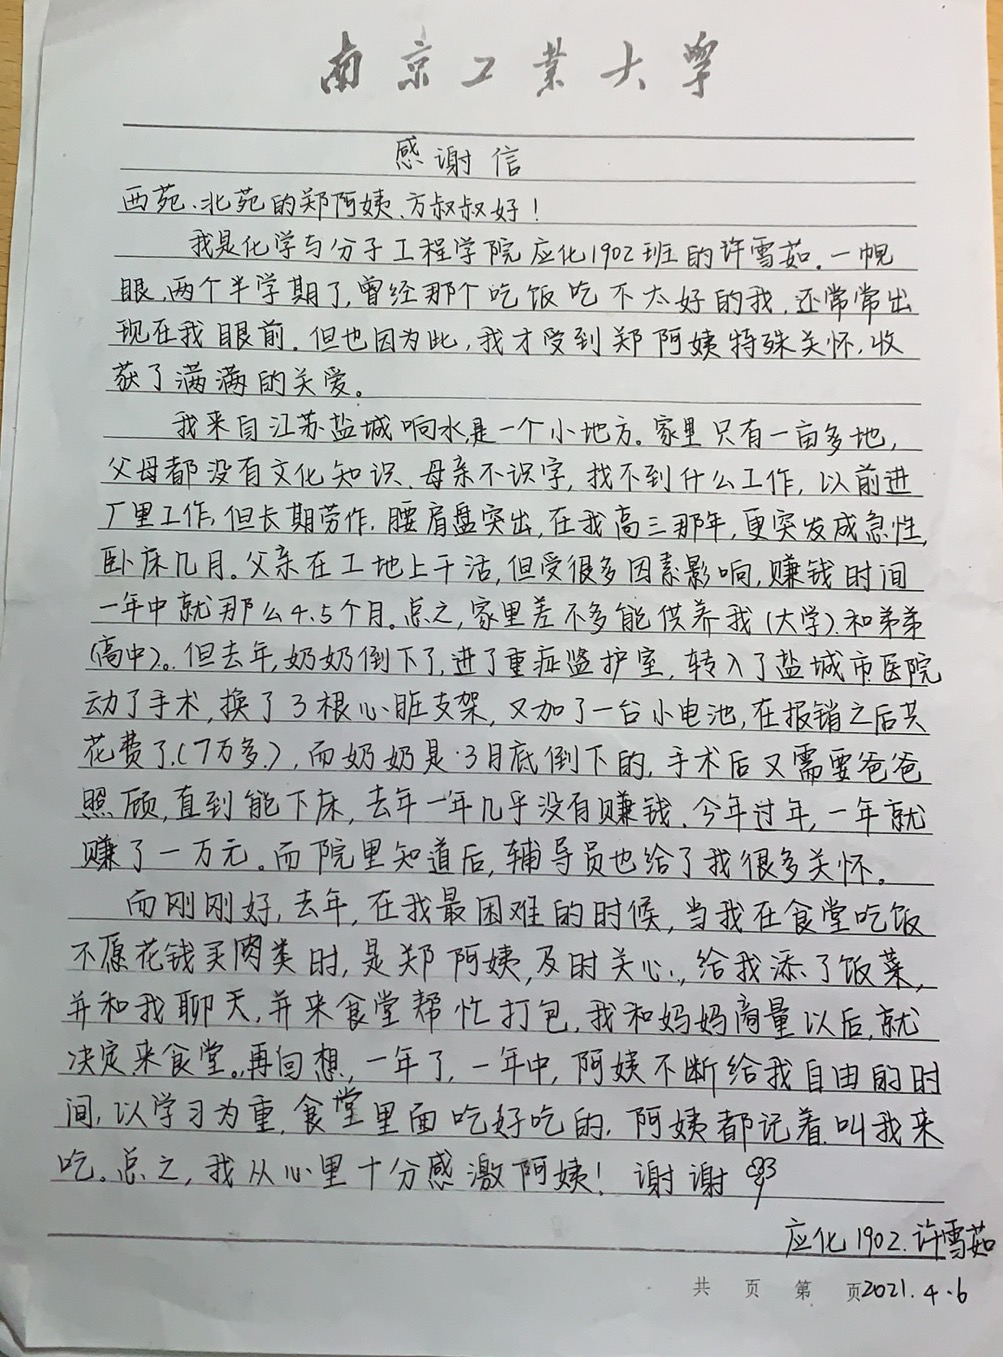 南京工业大学
感谢信
西苑、北苑的郑阿姨、方叔叔好！
我是化学与分子工程学院应化1902班的许雪茹。一幌
眼，两个半学期了，曾经那个吃饭吃不太好的我，还常常出
现在我眼前。但也因为此，我才受到郑阿姨特殊关怀，收
获了满满的关爱。
我来自江苏盐城响水，是一个小地方。家里只有一亩多地，
父母都没有文化知识、母亲不识字，找不到什么工作，以前进
厂里工作，但长期劳作，腰肩盘突出，在我高三那年，更突发成急性，
卧床几月。父亲在工地上干活，但受很多因素影响，赚钱时间
一年中就那么4.5个月。总之，家里差不多能供养我（大学）和弟弟
（高中）。但去年，奶奶倒下了，进了重症监护室，转入了盐城市医院
动了手术，换了3根心脏支架，又加了一台小电池，在报销之后共
花费了（7万多），而奶奶是3月底倒下的，手术后又需要爸爸
照顾，直到能下床，去年一年几乎没有赚钱、今年过年，一年就
赚了一万元。而院里知道后，辅导员也给了我很多关怀。
而刚刚好，去年，在我最困难的时候，当我在食堂吃饭
不愿花钱买肉类时，是郑阿姨，及时关心，给我添了饭菜，
并和我聊天，并来食堂帮忙打包，我和妈妈商量以后，就
决定来食堂。再回想，一年了，一年中，阿姨不断给我自由的时
间，以学习为重，食堂里面吃好吃的，阿姨都记着，叫我来
吃。总之，我从心里十分感激阿姨！谢谢
应化1902.许雪茹
共 页 第 页 2021.4.6